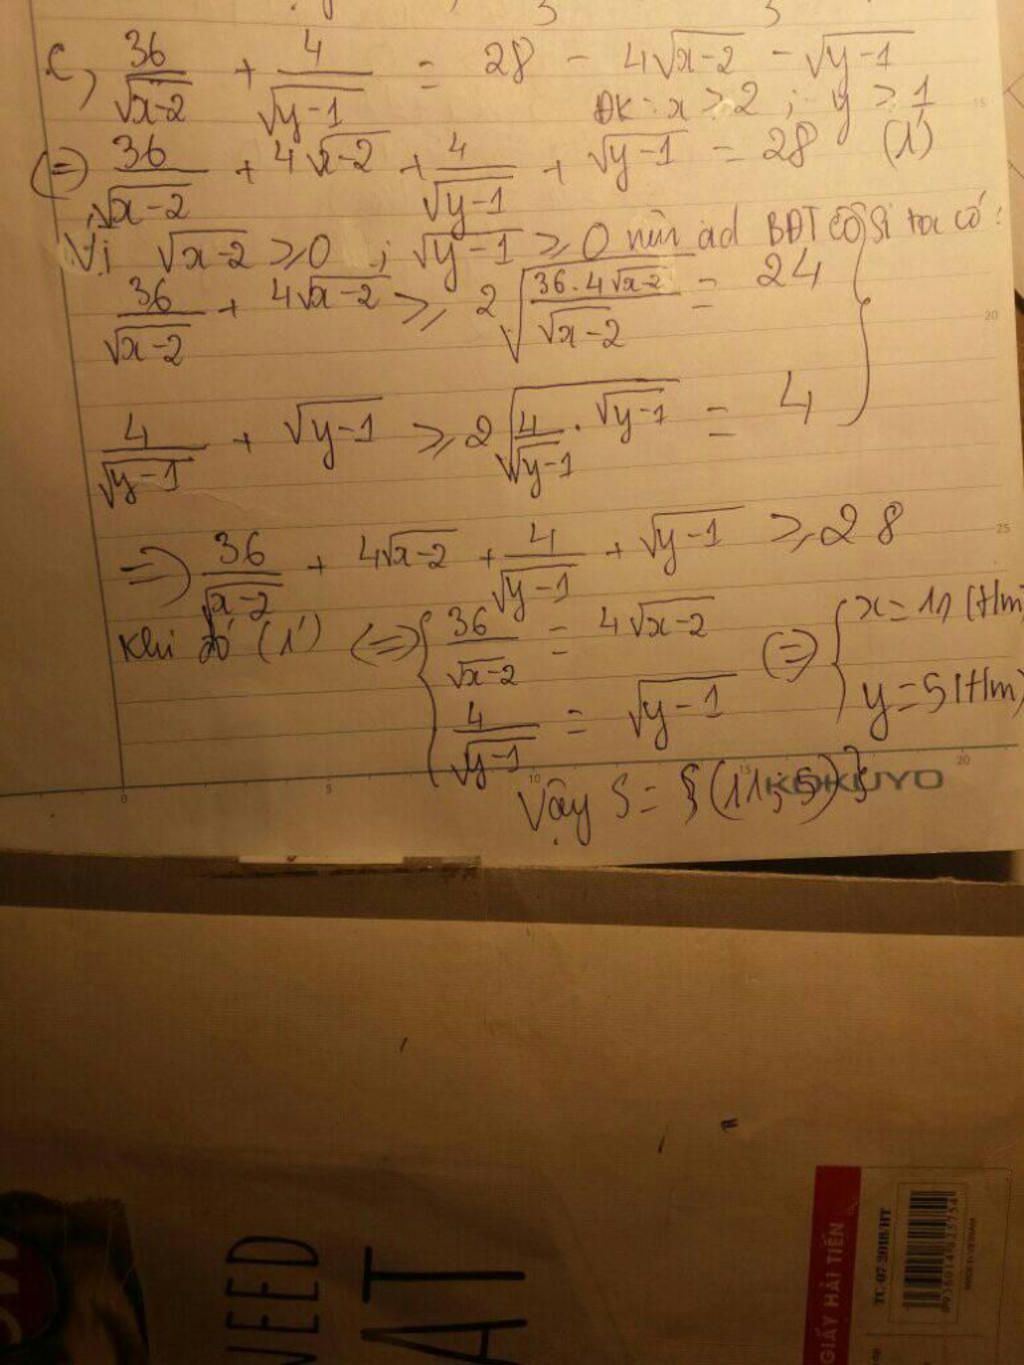 c, 36/√x-2 + 4/√y-1 = 28 - 4√x-2 - √y-1
ĐK: x > 2 ; y > 1
(=) 36/√x-2 + 4√x-2 + 4/√y-1 + √y-1 = 28 (1')
Vì √x-2 ≥ 0 ; √y-1 ≥ 0 nên ad BĐT Cô Si ta có:
36/√x-2 + 4√x-2 ≥ 2√(36.4√x-2/√x-2) = 24
4/√y-1 + √y-1 ≥ 2√(4/√y-1 . √y-1) = 4
=) 36/√x-2 + 4√x-2 + 4/√y-1 + √y-1 ≥ 28
Khi đó (1') (=) { 36/√x-2 = 4√x-2 (=) { x = 11 (t/m)
4/√y-1 = √y-1 y = 5 (t/m)
Vậy S = {(11;5)}
KOKUYO
0 5 10 15 20
15
20
25
NEED
AT
GIẤY HẢI TIẾN
TC-07-2018/HT
MADE IN VIETNAM